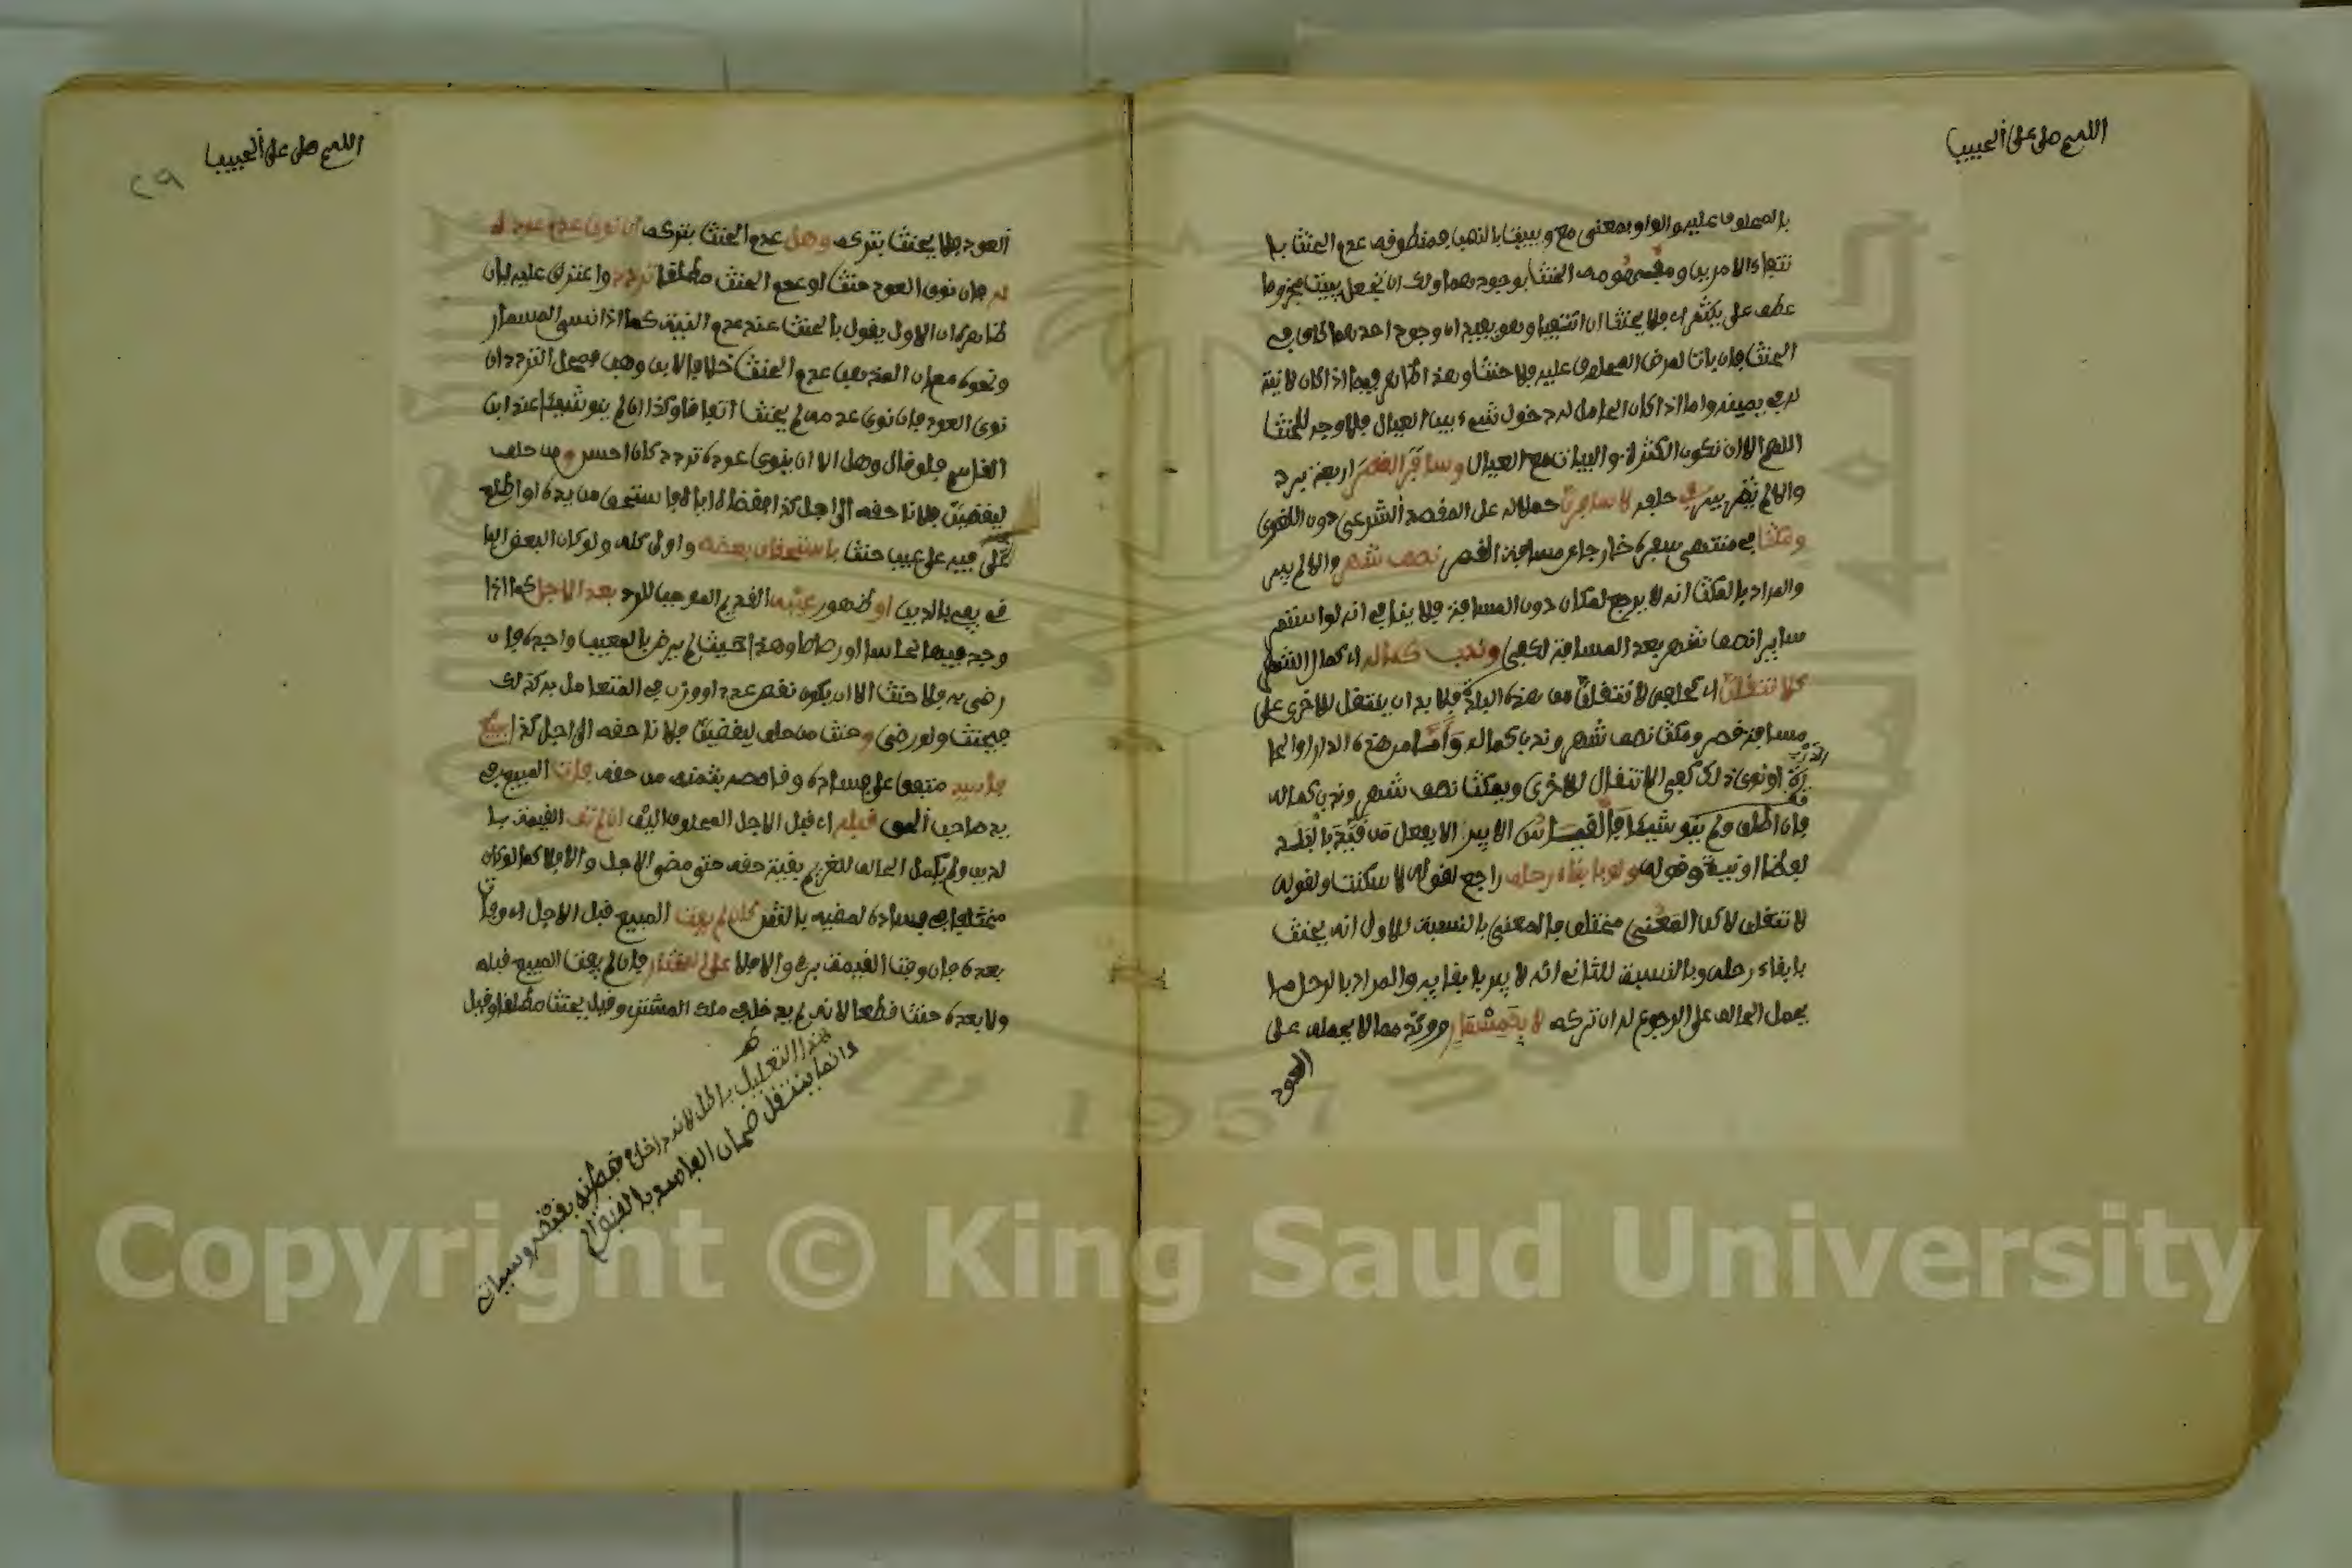 اللهم صل على الحبيب
بالمحلوف عليه والواو بمعنى مع ويبيت بالنصب فمنطوقه عدم الحنث با
نتفاء الامرين ومفهومه الحنث بوجودهما ولك ان تجعل يبيت مجزوما
عطف على يكثر اي فلا يحنث ان انتفيا وهو يفيد ان وجود احدهما كاف في
الحنث فان بات لمرض المحلوف عليه فلا حنث وهذا ظاهر فيما اذا كان لا نية
له في يمينه واما اذا كان الحامل له دخول شيء بين العيال فلا وجه للحنث
اللهم الا ان تكون الكثرة والبيات مع العيال وسافر القصر اربعة برد
والا لم يبر في حلفه لاسافرن حملا له على المقصد الشرعي دون اللغوي
ومكث في منتهى سفره خارجا عن مسافة القصر نصف شهر والا لم يبر
والمراد بالمكث انه لا يرجع لمكان دون المسافة فلا ينافي انه لو استمر
سايرا نصف شهر بعد المسافة لكفى وندب كماله اي كمال الشهر
كلانتقلن اي كحلفه لانتقلن من هذه البلدة فلا بد ان ينتقل لاخرى على
مسافة قصر ومكث نصف شهر وندب كماله واما من هذه الدار او الحا
رة او نوى ذلك كفى الانتقال لاخرى ويمكث نصف شهر وندب كماله
فان اطلق ولم ينو شيئا فالقياس الا يبر الا بفعل
لفظا او نية وقوله ولو بابقاء رحله راجع لقوله لا سكنت ولقوله
لانتقلن لاكن المعنى مختلف فالمعنى بالنسبة للاول انه يحنث
بابقاء رحله وبالنسبة للثاني انه لا يبر بابقايه والمراد بالرحل ما
يحمل الحالف على الرجوع له ان تركه لا بكمسمار ووتد مما لا يحمله على
العود
اللهم صل على الحبيب
٢٩
العود فلا يحنث بتركه وهل عدم الحنث بتركه ان نوى عدم عوده
له فان نوى العود حنث او عدم الحنث مطلقا تردد واعترض عليه بان
ظاهره ان الاول يقول بالحنث عند عدم النية كما اذا نسي المسمار
ونحوه مع ان المذهب عدم الحنث خلافا لابن وهب فمحل التردد ان
نوى العود فان نوى عدمه لم يحنث اتفاقا وكذا ان لم ينو شيئا عند ابن
القاسم فلو قال وهل الا ان ينوي عوده تردد كان احسن ومن حلف
ليقضين فلانا حقه الى اجل كذا فقضاه اياه فاستحق من يده او اطلع
فيه على عيب حنث باستحقاق بعضه واولى كله ولو كان البعض الباقي
يفي بالدين او ظهور عيبه القديم الموجب للرد بعد الاجل كما اذا
وجد فيها نحاسا او رصاصا وهذا حيث لم يرض بالمعيب واجده فان
رضي به فلا حنث الا ان يكون نقص عدد او وزن في المتعامل به كذلك
فيحنث ولو رضي وحنث من حلف ليقضين فلانا حقه الى اجل كذا ببيع
فاسد متفقا على فساده وقاصصه بثمنه من حقه فات المبيع في
يد صاحب الحق قبله اي قبل الاجل المحلوف اليه ان لم تف القيمة بما
له ولم يكمل الحالف للغريم بقية حقه حتى مضى الاجل والا فلا كما لو كان
مختلفا في فساده لمضيه بالثمن كان لم يفت المبيع قبل الاجل اي وفات
بعده فان وفت القيمة بر والا فلا على المختار فان لم يفت المبيع قبله
ولا بعده حنث قطعا لانه لم يدخل في ملك المشتري وقيل يحنث مطلقا وقيل
هذا التعليل باطل لانه داخل
وانما ينتقل ضمان الفاسد بالقبض
Copyright © King Saud University
1957